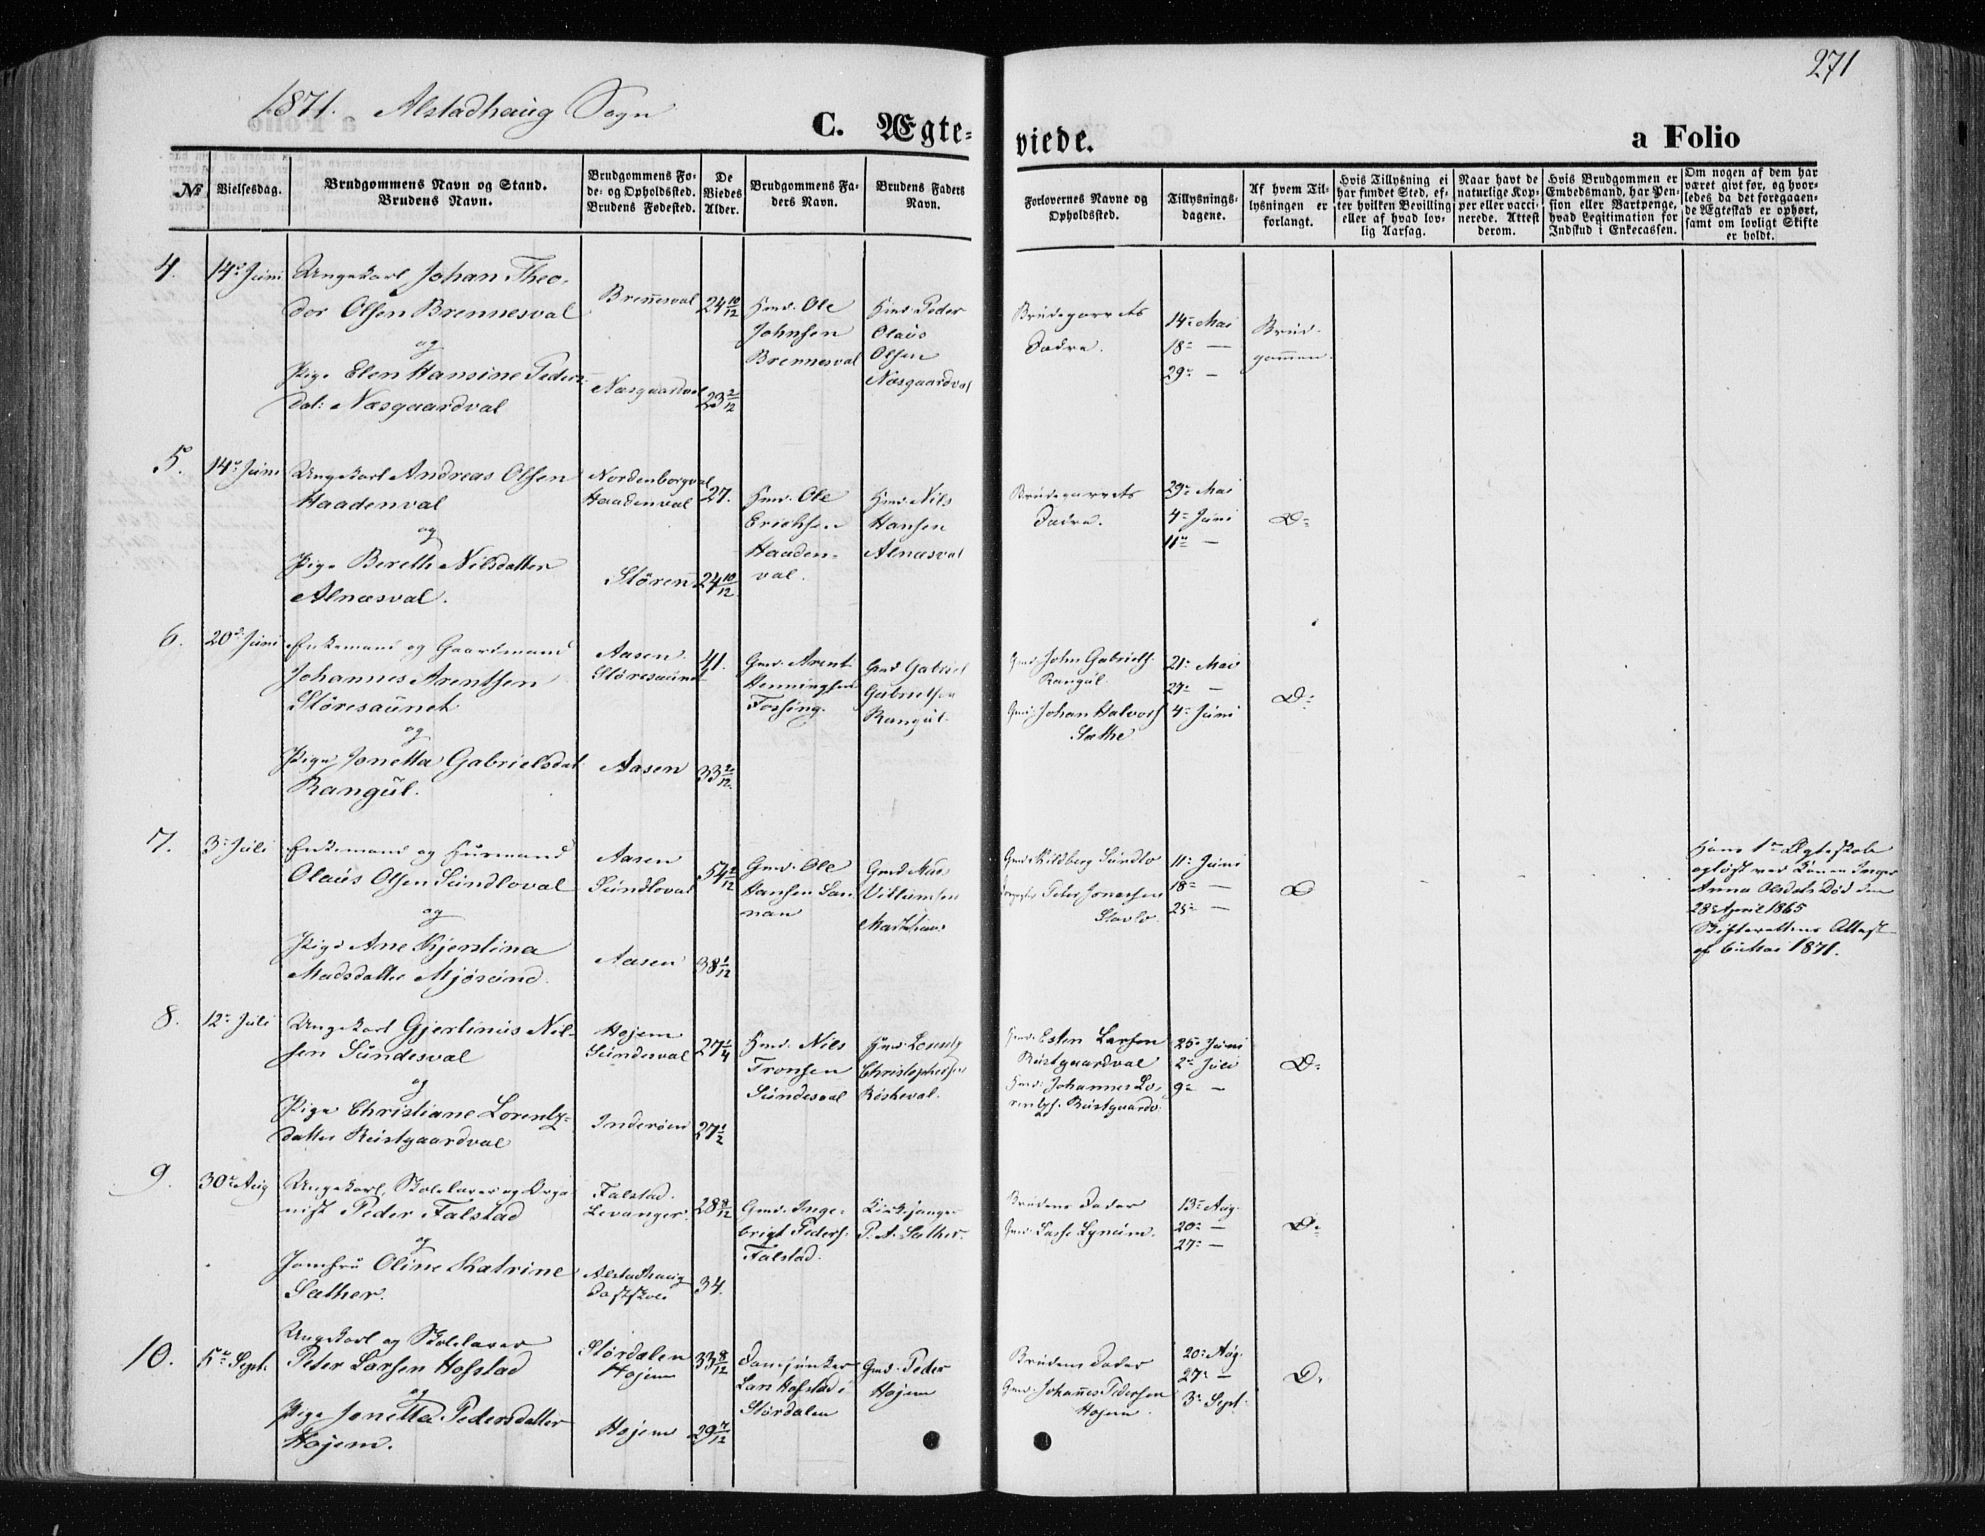 271
1871. Alstadhaug Sogn
C. Ægte-
viede.
a Folio
№
Vielsesdag.
Brudgommens Navn og Stand.
Brudens Navn.
Brudgommens Fø-
de- og Opholdssted.
Brudens Fødested.
De
Viedes
Alder.
Brudgommens Fa-
ders Navn.
Brudens Faders
Navn.
Forlovernes Navne og
Opholdssted.
Tillysnings-
dagene.
Af hvem Til-
lysningen er
forlangt.
Hvis Tillysning ei
har fundet Sted, ef-
ter hvilken Bevilling
eller af hvad lov-
lig Aarsag.
Naar havt de
naturlige Kop-
per eller vacci-
nerede. Attest
derom.
Hvis Brudgommen er
Embedsmand, har Pen-
sion eller Vartpenge,
hvad Legitimation for
Indskud i Enkecassen.
Om nogen af dem har
været gift før, og hvor-
ledes da det foregaaen-
de Ægteskab er ophørt,
samt om lovligt Skifte
er holdt.
4.
14de Juni
Ungekarl Johan Theo-
dor Olsen Brennesval
og
Pige Elen Hansine Peders-
dat: Næsgaardval
Brennesval
Næsgaardval
24 10/12
23 2/12
Hmd. Ole
Johnsen
Brennesval
Hmd. Peder
Olaus
Olsen
Næsgaardval
Brudeparrets
Fædre.
14de Mai
18de —
29de —
Brud-
gommen.
5.
14de Juni
Ungekarl Andreas Olsen
Haadenval
og
Pige Berette Nilsdatter
Alnæsval.
Nordenborgval
Haadenval
Stören
27.
24 10/12
Hmd. Ole
Erichsen
Haaden-
val.
Hmd. Nils
Hansen
Alnæsval
Brudeparrets
Fædre.
29de Mai
4de Juni
11te —
Do
6.
20de Juni
Enkemand og Gaardmand
Johannes Arentsen
Störesaunet
og
Pige Jonetta Gabrielsdat
Rangul.
Aasen
Störesaunet
Aasen
41.
33 2/12
Gmd. Arent
Henningsen
Fossing.
Gmd Gabriel
Gabrielsen
Rangul.
Gmd. John Gabriels.
Rangul.
Gmd. Johan Halvors
Sæthe
21de Mai
27de —
4de Juni
Do
7.
3de Juli
Enkemand og Husmand
Olaus Olsen Sundloval
og
Pige Ane Kjerstina
Madsdatter Mjösund.
Aasen
Sundloval
Aasen
54 2/12
38 1/12
Gmd. Ole
Hansen San-
nan
Gmd.
Gmd. Kildberg Sundlo
Peter Jonassen
11te Juni
18de —
25de —
Do
Hans 1ste Ægteskab
opløst ved Konen Inger
Anna Olsdats Död den
28de April 1865
Skifterettens Attest
af 6te Mai 1871.
8.
12te Juli
Ungekarl Gjertinus Nil-
sen Sundesval
og
Pige Christiane Lorentz-
datter Rustgaardval
Hojem
Sundesval
Inderöen
27 1/4
27 1/2
Hmd. Nils
Tronsen
Sundesval
Hmd. Lorentz
Christophersen
Röskeval.
Hmd. Esten Larsen
Rustgaardval
Hmd. Johannes Lo-
rentzs. Rustgaardv.
25de Juni
2den Juli
9de —
Do
9.
30te Aug
Ungekarl, Skolelærer og Orga-
nist Peder Falstad
og
Jomfru Oline Katrine
Sæther.
Falstad.
Levanger.
Alstadhaug
28 8/12
34.
Gmd. Inge-
brigt Peders.
Falstad.
Kirkesanger
P. A. Sæther.
Brudens Fader
Gmd. Lasse Lynum.
13de Aug.
20de —
27de —
Do
10.
5te Sept.
Ungekarl og Skolelærer
Peter Larsen Hofstad
og
Pige Jonetta Pedersdatter
Hojem.
Stördalen
Hojem
Hojem
33 8/12
29 7/12
Lars Hofstad i
Stördalen
Gmd. Peder
Hojem
Brudens Fader
Gmd. Johannes Pedersen
Hojem.
20de Aug.
27de —
3de Sept.
Do